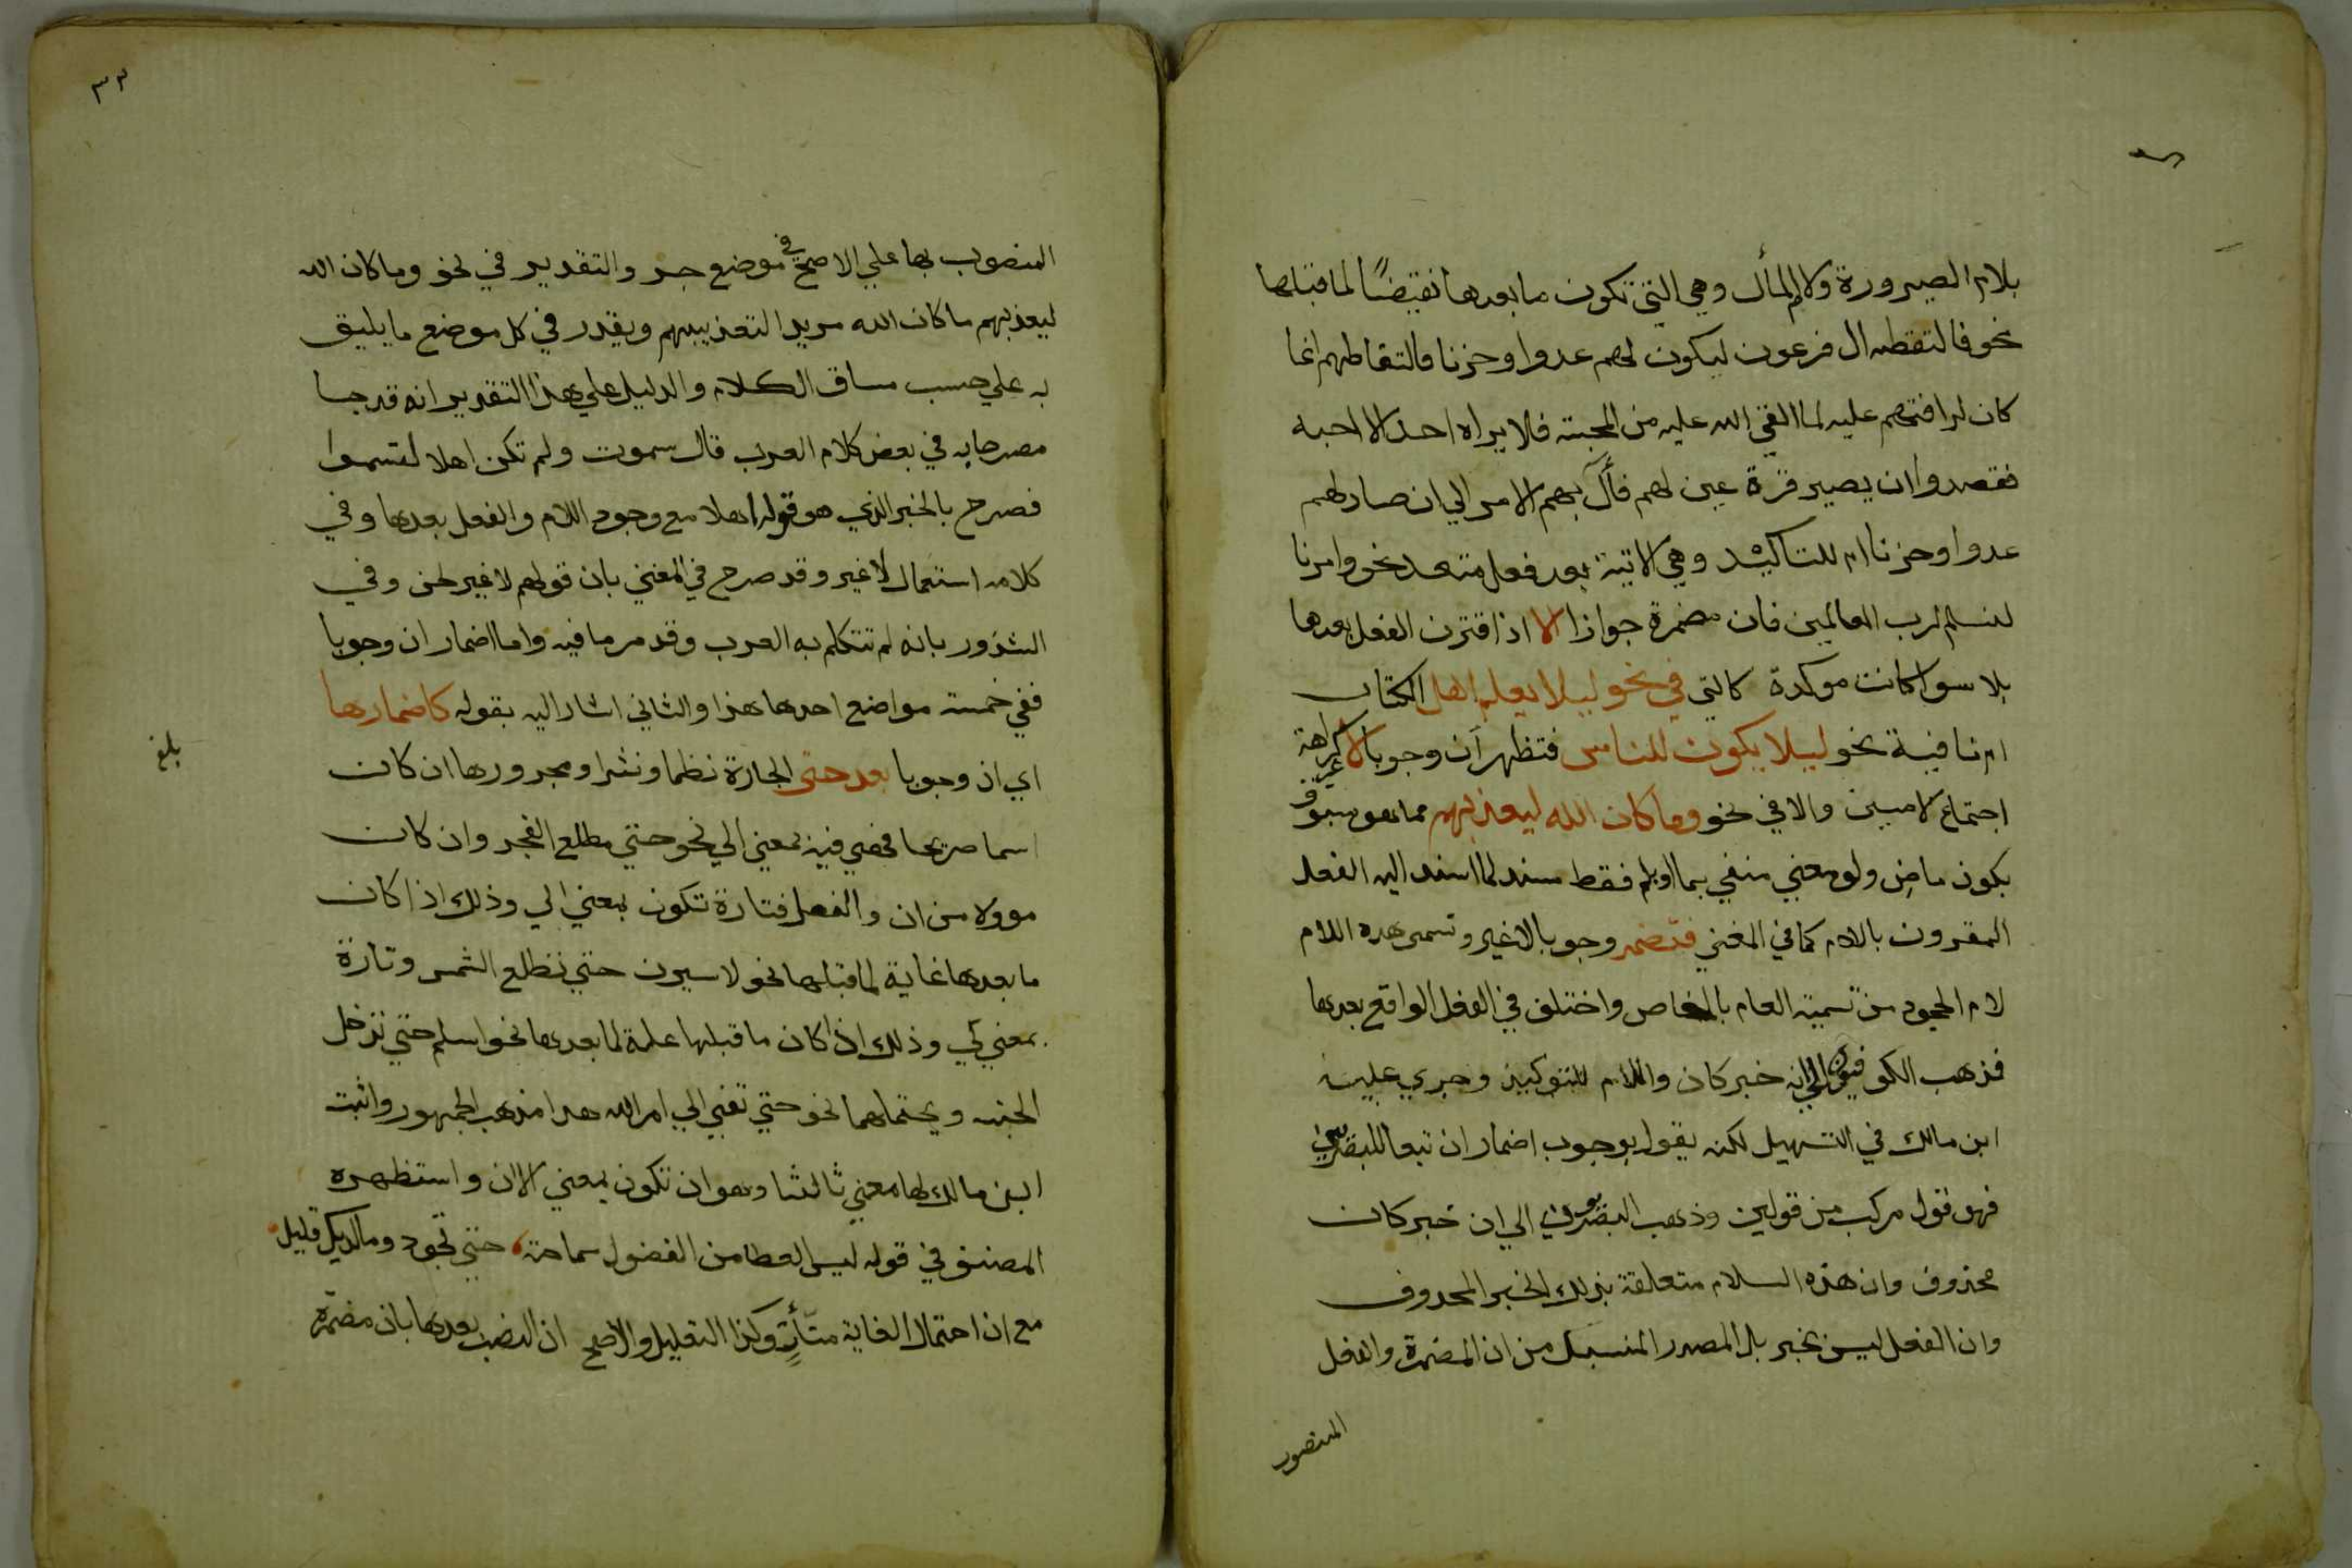 بلام الصيرورة ولام المأل وهي التي تكون ما بعدها نقيضًا لما قبلها
نحو فالتقطه ال فرعون ليكون لهم عدوا وحزنا فالتقاطهم انما
كان لرافتهم عليه لما القي الله عليه من المحبة فلا يراه احد الا احبه
فقصدوا ان يصير قرة عين لهم فآل بهم الامر الي ان صار لهم
عدوا وحزنا ام للتاكيد وهي الاتية بعد فعل متعد نحو وامرنا
لنسلم لرب العالمين فان مضمرة جوازا الا اذا اقترن الفعل بعدها
بلا سوا كانت موكدة كالتي في نحو ليلا يعلم اهل الكتاب
ام نافية نحو ليلا يكون للناس فتظهر ان وجوبا لا كراهة
اجتماع لامين والا في نحو وما كان الله ليعذبهم مما هو مسبوق
بكون ماض ولو معني منفي بما او بلم فقط مسند لما اسند اليه الفعل
المقرون بالام كما في المغني فتضمر وجوبا لاغير وتسمى هده اللام
لام الجحود من تسمية العام بالخاص واختلف في الفعل الواقع بعدها
فذهب الكوفيون الي انه خبر كان واللام للتوكيد وجري عليه
ابن مالك في التسهيل لكنه يقول بوجوب اضمار ان تبعا للبصريين
فهو قول مركب من قولين وذهب البصريون الي ان خبر كان
محذوف وان هذه السلام متعلقة بذلك الخبر المحدوف
وان الفعل ليس بخبر بل المصدر المنسبك من ان المضمرة والفعل
المنصوب
٣٣
المنصوب بها علي الاصح في موضع جر والتقدير في نحو وما كان الله
ليعذبهم ما كان الله مريدا لتعذيبهم ويقدر في كل موضع ما يليق
به علي حسب مساق الكلام والدليل علي هذا التقدير انه قد جا
مصرحا به في بعض كلام العرب قال سموت ولم تكن اهلا لتسموا
فصرح بالخبر الذي هو قوله اهلا مع وجود اللام والفعل بعدها وفي
كلامه استعمال لاغير وقد صرح في المغني بان قولهم لاغير لحن وفي
الشذور بانه لم تتكلم به العرب وقد مر ما فيه واما اضمار ان وجوبا
ففي خمسة مواضع احدها هذا والثاني اشار اليه بقوله كاضمارها
اي ان وجوبا بعد حتى الجارة نظما ونثرا ومجرورها ان كان
بلغ
اسما صريحا فهي فيه بمعني الي نحو حتي مطلع الفجر وان كان
موولا من ان والفعل فتارة تكون بمعني الي وذلك اذا كان
ما بعدها غاية لما قبلها نحو لاسيرن حتي تطلع الشمس وتارة
بمعني كي وذلك اذا كان ما قبلها علة لما بعدها نحو اسلم حتي تدخل
الجنه ويحتملهما نحو حتي تفي الي امر الله هدا مذهب الجمهور واثبت
ابن مالك لها معني ثالثا وهو ان تكون بمعني الا ان واستظهره
المصنف في قوله ليس العطا من الفضول سماحة حتي تجود وما لديك قليل
مع ان احتمال الغاية متأت وكذا التعليل والاصح ان النصب بعدها بان مضمرة